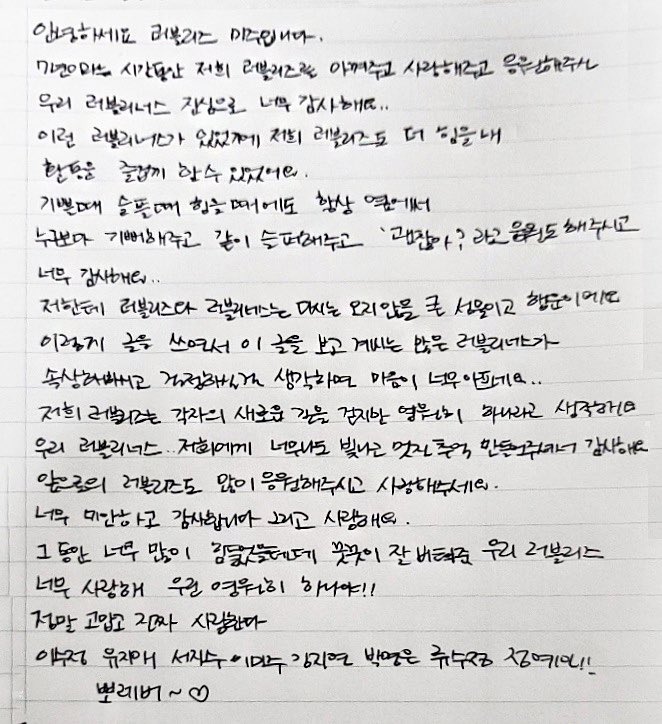 안녕하세요 러블리즈 미주입니다.
7년이라는 시간동안 저희 러블리즈를 아껴주고 사랑해주고 응원해주신
우리 러블리너스 진심으로 너무 감사해요..
이런 러블리너스가 있었기에 저희 러블리즈도 더 힘을 내
활동을 즐겁게 할 수 있었어요.
기쁠때 슬플때 힘들때에도 항상 옆에서
누구보다 기뻐해주고 같이 슬퍼해주고 '괜찮아? 라고 응원도 해주시고
너무 감사해요..
저한테 러블리즈와 러블리너스는 다시는 오지않을 큰 선물이고 행운이에요
이렇게 글을 쓰면서 이 글을 보고 계시는 많은 러블리너스가
속상해하시고 걱정하실걸 생각하면 마음이 너무 아프네요..
저희 러블리즈는 각자의 새로운 길을 걷지만 영원히 하나라고 생각해요
우리 러블리너스.. 저희에게 너무나도 빛나고 멋진 추억 만들어주셔서 감사해요
앞으로의 러블리즈도 많이 응원해주시고 사랑해주세요.
너무 미안하고 감사합니다 그리고 사랑해요.
그동안 너무 많이 힘들었을텐데 꿋꿋이 잘 버텨준 우리 러블리즈
너무 사랑해 우린 영원히 하나야!!
정말 고맙고 진짜 사랑한다
이수정 유지애 서지수 이미주 김지연 박명은 류수정 정예인!!
뽀레버~♡